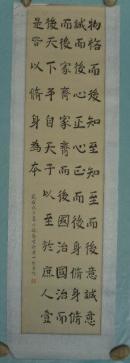 物格而後知至知至而後意誠意
誠而後心正心正而後身脩身脩
而後家齊家齊而後國治國治而
後天下平自天子以至於庶人壹
是皆以脩身為本